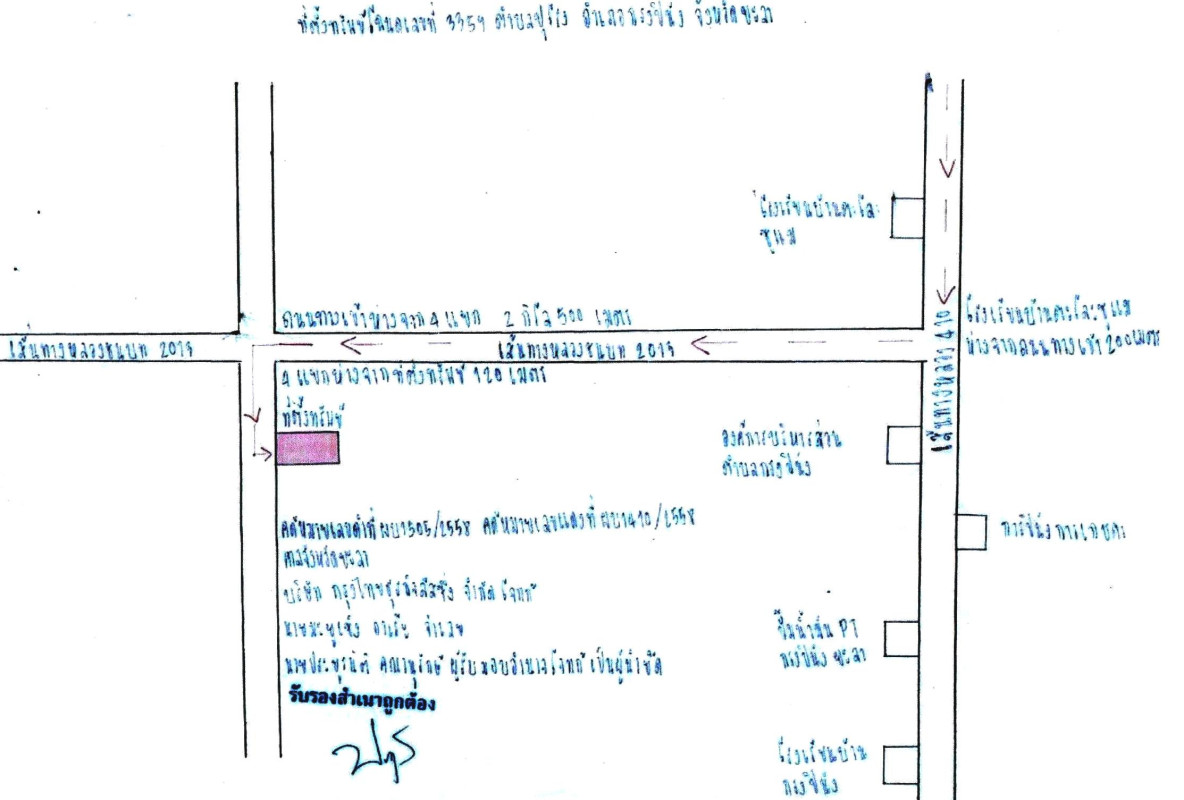 ที่ตั้งทรัพย์โฉนดเลขที่ 3354 ตำบลปุโรง อำเภอกรงปินัง จังหวัดยะลา
โรงเรียนบ้านตะโละ
ซูแม
ถนนทางเข้าห่างจาก 4 แยก 2 กิโล 500 เมตร
เส้นทางหลวงชนบท 2015
เส้นทางหลวงชนบท 2015
เส้นทางหลวง 410
โรงเรียนบ้านตะโละซูแม
ห่างจากถนนทางเข้า 200 เมตร
4 แยกห่างจากที่ตั้งทรัพย์ 120 เมตร
ที่ตั้งทรัพย์
องค์การบริหารส่วน
ตำบลกรงปินัง
คดีหมายเลขดำที่ ผบ1305/2558 คดีหมายเลขแดงที่ ผบ1410/2558
ศาลจังหวัดยะลา
กรงปินังการ
บริษัท กรุงไทยธุรกิจลีสซิ่ง จำกัด โจทก์
จำเลย
ปั๊มน้ำมัน PT
กรงปินัง ยะลา
ผู้รับมอบอำนาจโจทก์ เป็นผู้นำยึด
รับรองสำเนาถูกต้อง
โรงเรียนบ้าน
กรงปินัง